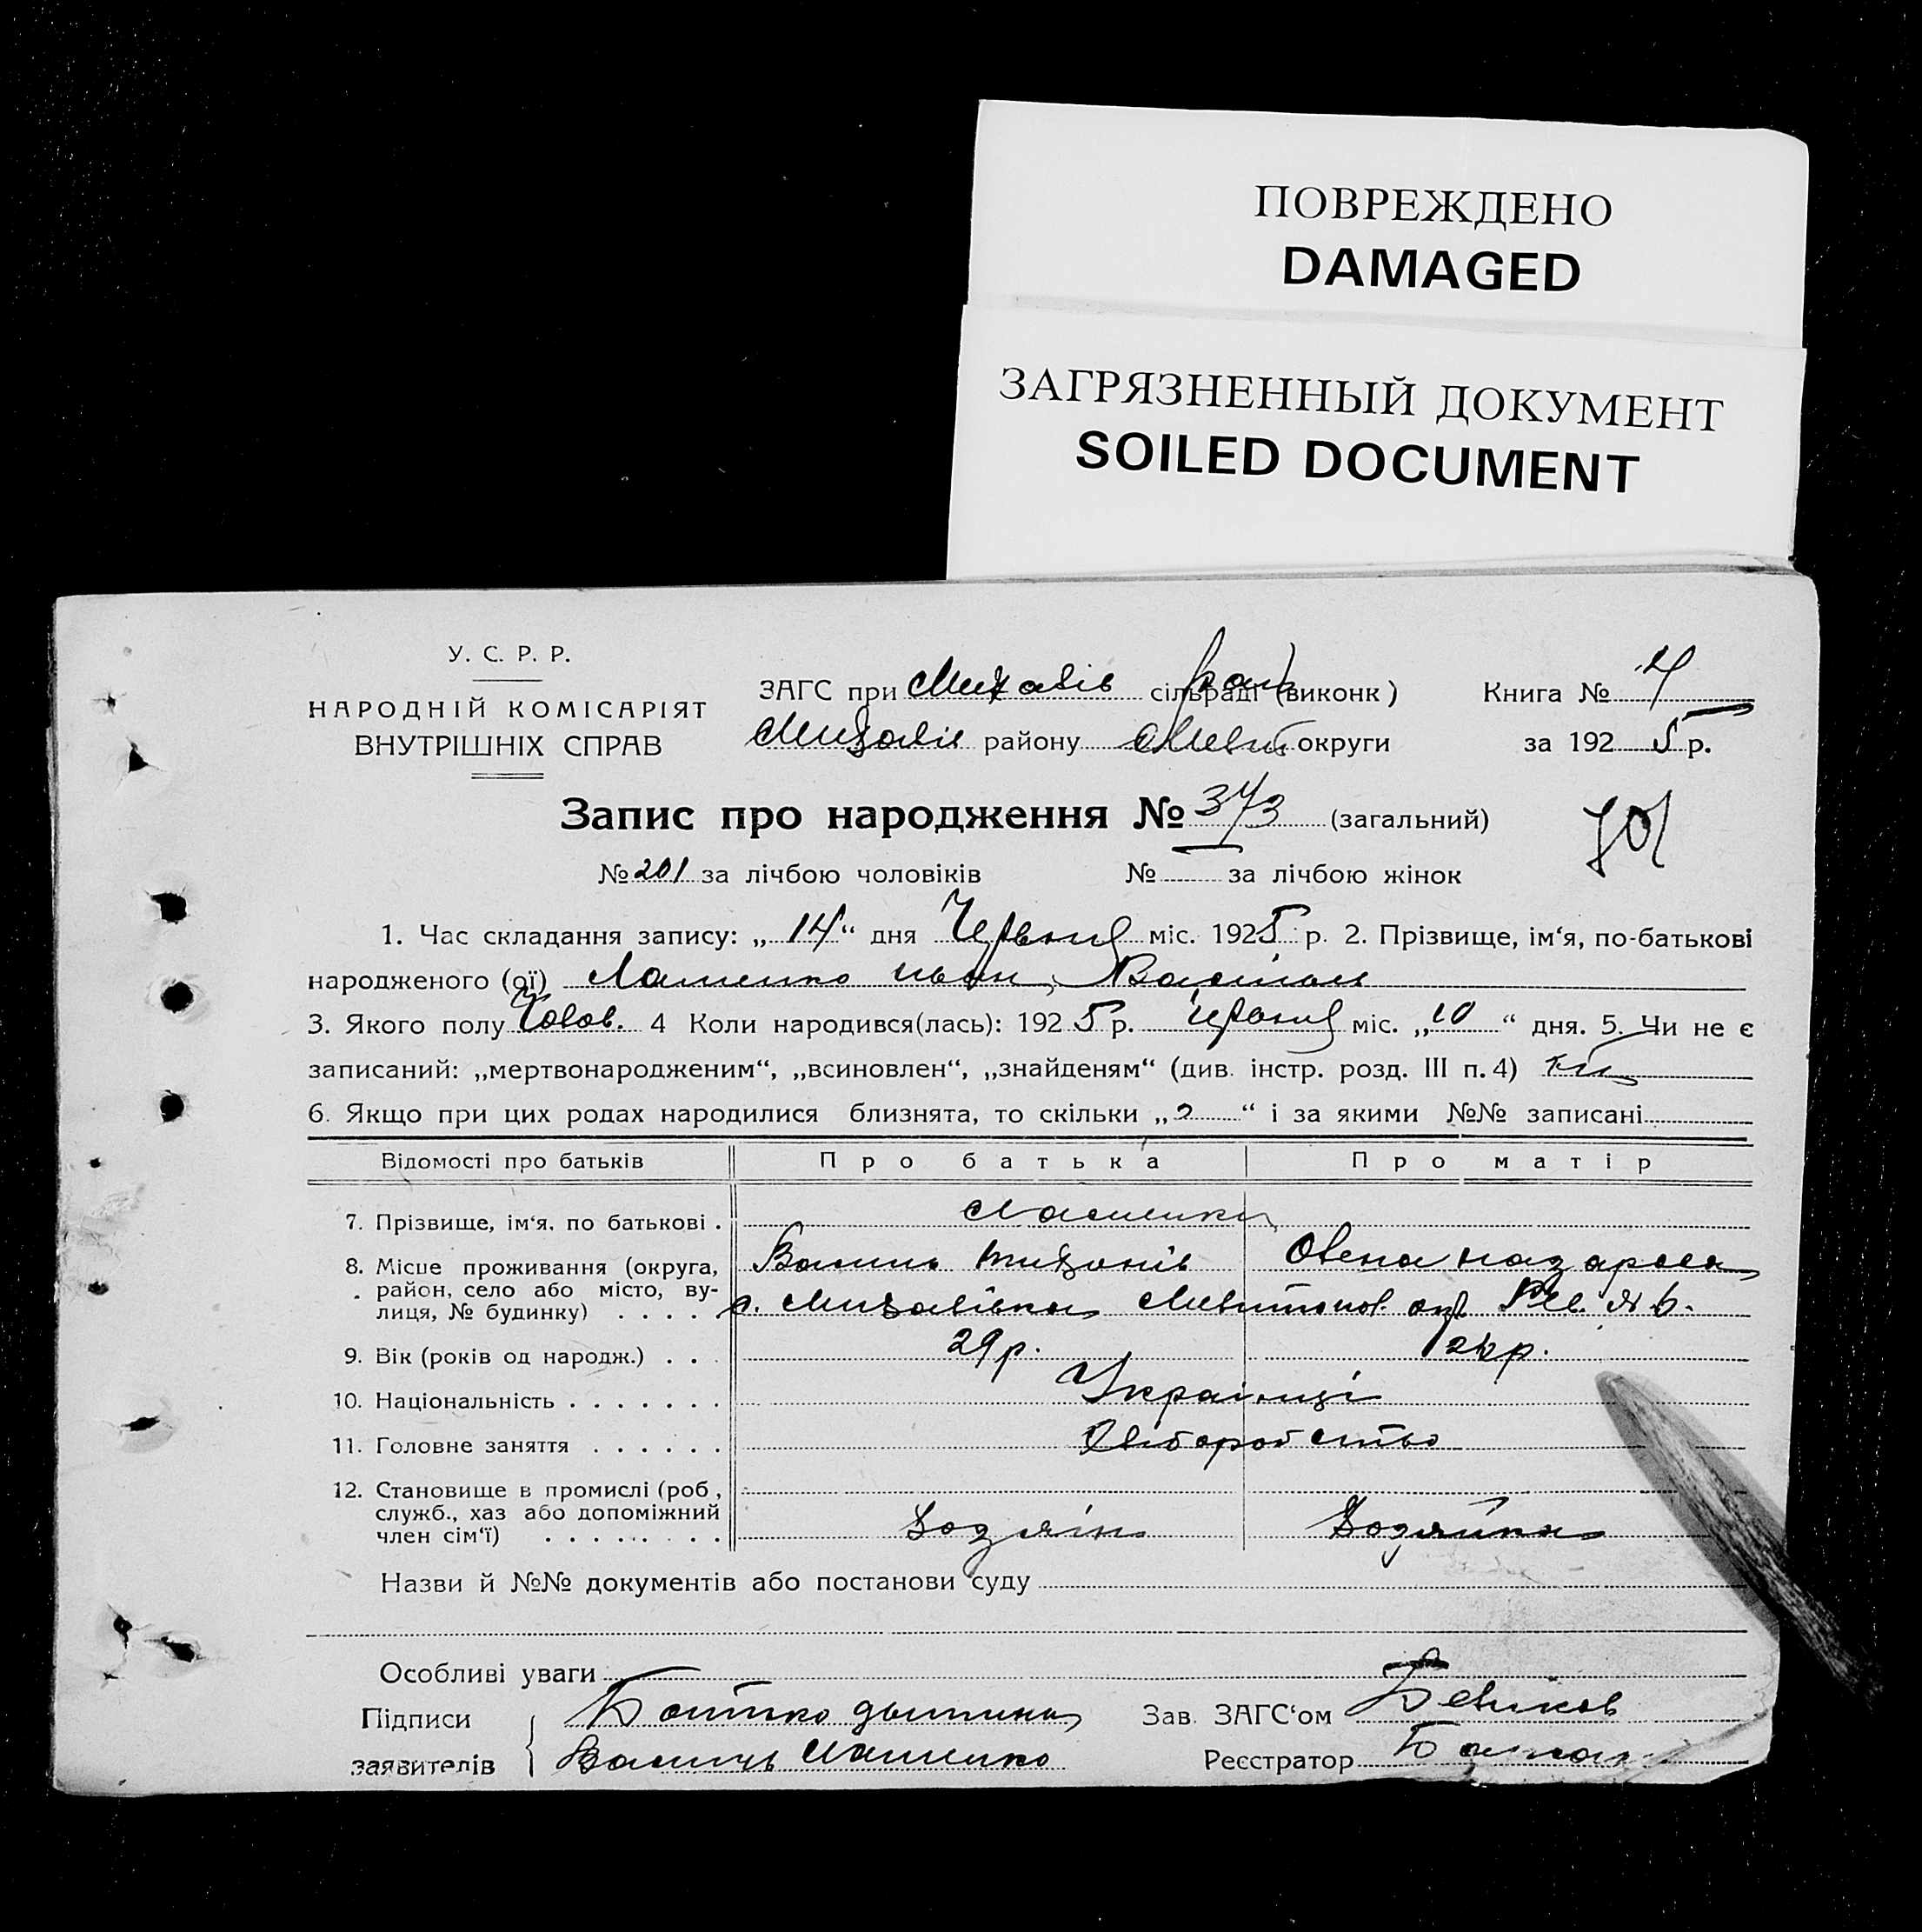 ПОВРЕЖДЕНО
DAMAGED
ЗАГРЯЗНЕННЫЙ ДОКУМЕНТ
SOILED DOCUMENT
У. С. Р. Р.
НАРОДНІЙ КОМІСАРІЯТ
ВНУТРІШНІХ СПРАВ
ЗАГС при Михалів сільраді (виконк) Книга № 4
Михалів району Меліт округи за 1925 р.
Запис про народження № 373 (загальний)
701
№ 201 за лічбою чоловіків № за лічбою жінок
1. Час складання запису: „14“ дня Червня міс. 1925 р. 2. Прізвище, ім‘я, по-батькові
народженого (ої) Лашенко Иван Василь
3. Якого полу Чолов. 4 Коли народився(лась): 1925 р. Червня міс. „10“ дня. 5. Чи не є
записаний: „мертвонародженим“, „всиновлен“, „знайденям“ (див. інстр. розд. III п. 4) ні
6. Якщо при цих родах народилися близнята, то скільки „ “ і за якими №№ записані
Відомості про батьків Про батька Про матір
7. Прізвище, ім‘я, по батькові . Лашенки
8. Місце проживання (округа, Василь Тихонів Овена Назарова
район, село або місто, ву-
лиця, № будинку) . . . . с. Михалівка Мелитопол. окр
9. Вік (років од народж.) . . . 29 р. 26 р.
10. Національність . . . . . . . Українці
11. Головне заняття . . . . . . Хліборобство
12. Становище в промислі (роб,
служб., хаз або допоміжний
член сім‘ї) . . . . . . . . Хозяін Хозяйка
Назви й №№ документів або постанови суду
Особливі уваги
Підписи Батько дытины Зав. ЗАГС‘ом
заявителів Василь Лашенко Реєстратор